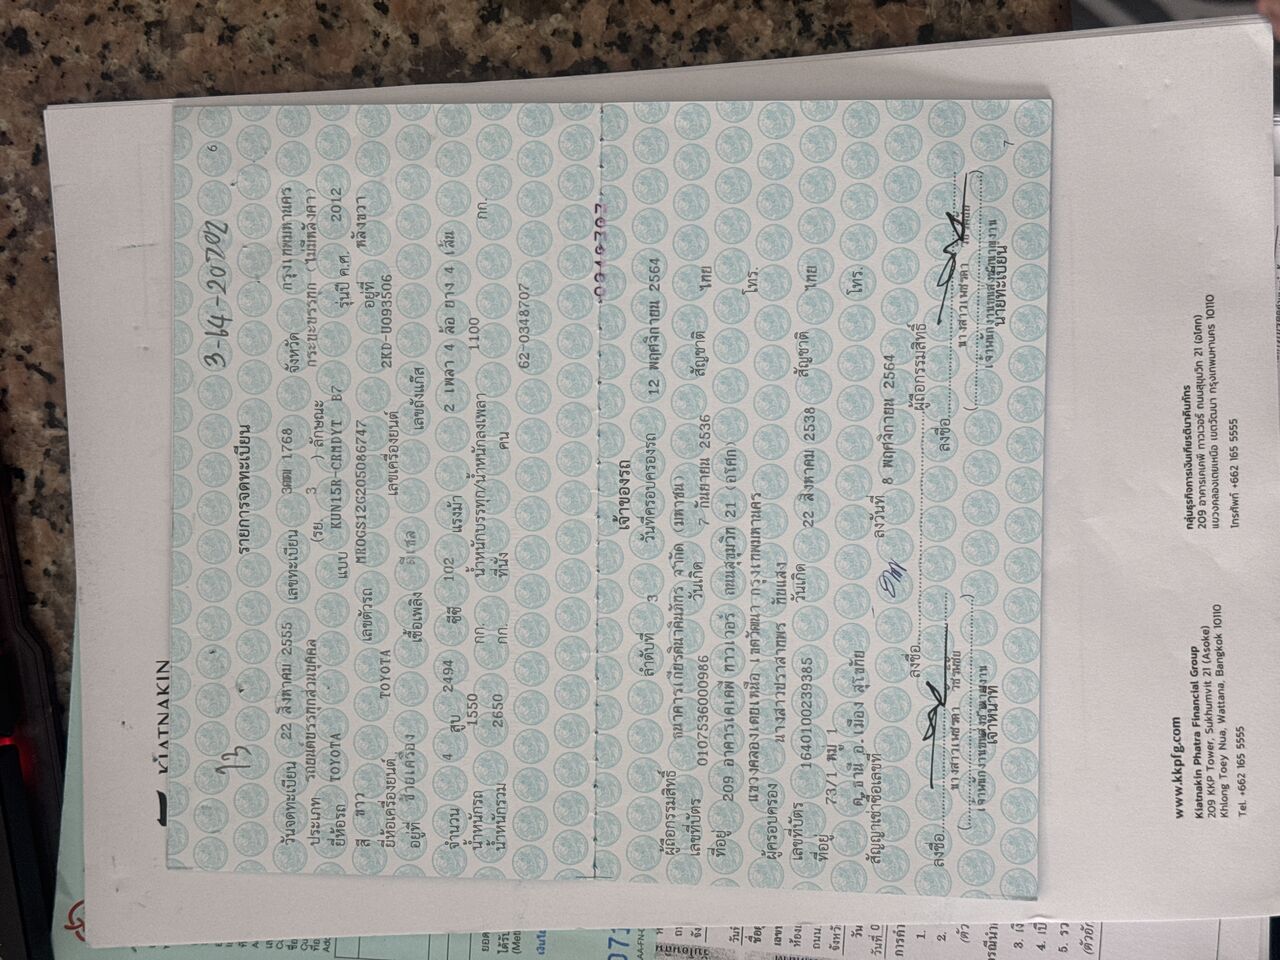 KIATNAKIN
93
3-64-20702
6
รายการจดทะเบียน
วันจดทะเบียน 22 สิงหาคม 2555 เลขทะเบียน 1768 จังหวัด กรุงเทพมหานคร
ประเภท รถยนต์บรรทุกส่วนบุคคล (รย. 3 ) ลักษณะ กระบะบรรทุก (ไม่มีหลังคา)
ยี่ห้อรถ TOYOTA แบบ KUN15R-CRMDYT B7 รุ่นปี ค.ศ. 2012
สี ขาว เลขตัวรถ MR0GS12G205086747 อยู่ที่ หลังขวา
ยี่ห้อเครื่องยนต์ TOYOTA เลขเครื่องยนต์ 2KD-U093506
อยู่ที่ ซ้ายเครื่อง เชื้อเพลิง ดีเซล เลขถังแก๊ส
จำนวน 4 สูบ 2494 ซีซี 102 แรงม้า 2 เพลา 4 ล้อ ยาง 4 เส้น
น้ำหนักรถ 1550 กก. น้ำหนักบรรทุก/น้ำหนักลงเพลา 1100 กก.
น้ำหนักรวม 2650 กก. ที่นั่ง คน
62-0348707
เจ้าของรถ
ลำดับที่ 3 วันที่ครอบครองรถ 12 พฤศจิกายน 2564
ผู้ถือกรรมสิทธิ์ ธนาคารเกียรตินาคินภัทร จำกัด (มหาชน)
เลขที่บัตร 0107536000986 วันเกิด 7 กันยายน 2536 สัญชาติ ไทย
ที่อยู่ 209 อาคารเคเคพี ทาวเวอร์ ถนนสุขุมวิท 21 (อโศก)
แขวงคลองเตยเหนือ เขตวัฒนา กรุงเทพมหานคร โทร.
ผู้ครอบครอง
เลขที่บัตร 1640100239385 วันเกิด 22 สิงหาคม 2538 สัญชาติ ไทย
ที่อยู่ 73/1 หมู่ 1
ต.ธานี อ.เมือง สุโขทัย โทร.
สัญญาเช่าซื้อเลขที่ ลงวันที่ 8 พฤศจิกายน 2564
ลงชื่อ ผู้ถือกรรมสิทธิ์
ลงชื่อ ลงชื่อ
เจ้าหน้าที่ นายทะเบียน
7
www.kkpfg.com
Kiatnakin Phatra Financial Group
209 KKP Tower, Sukhumvit 21 (Asoke)
Khlong Toey Nua, Wattana, Bangkok 10110
Tel. +662 165 5555
กลุ่มธุรกิจการเงินเกียรตินาคินภัทร
209 อาคารเคเคพี ทาวเวอร์ ถนนสุขุมวิท 21 (อโศก)
แขวงคลองเตยเหนือ เขตวัฒนา กรุงเทพมหานคร 10110
โทรศัพท์ +662 165 5555